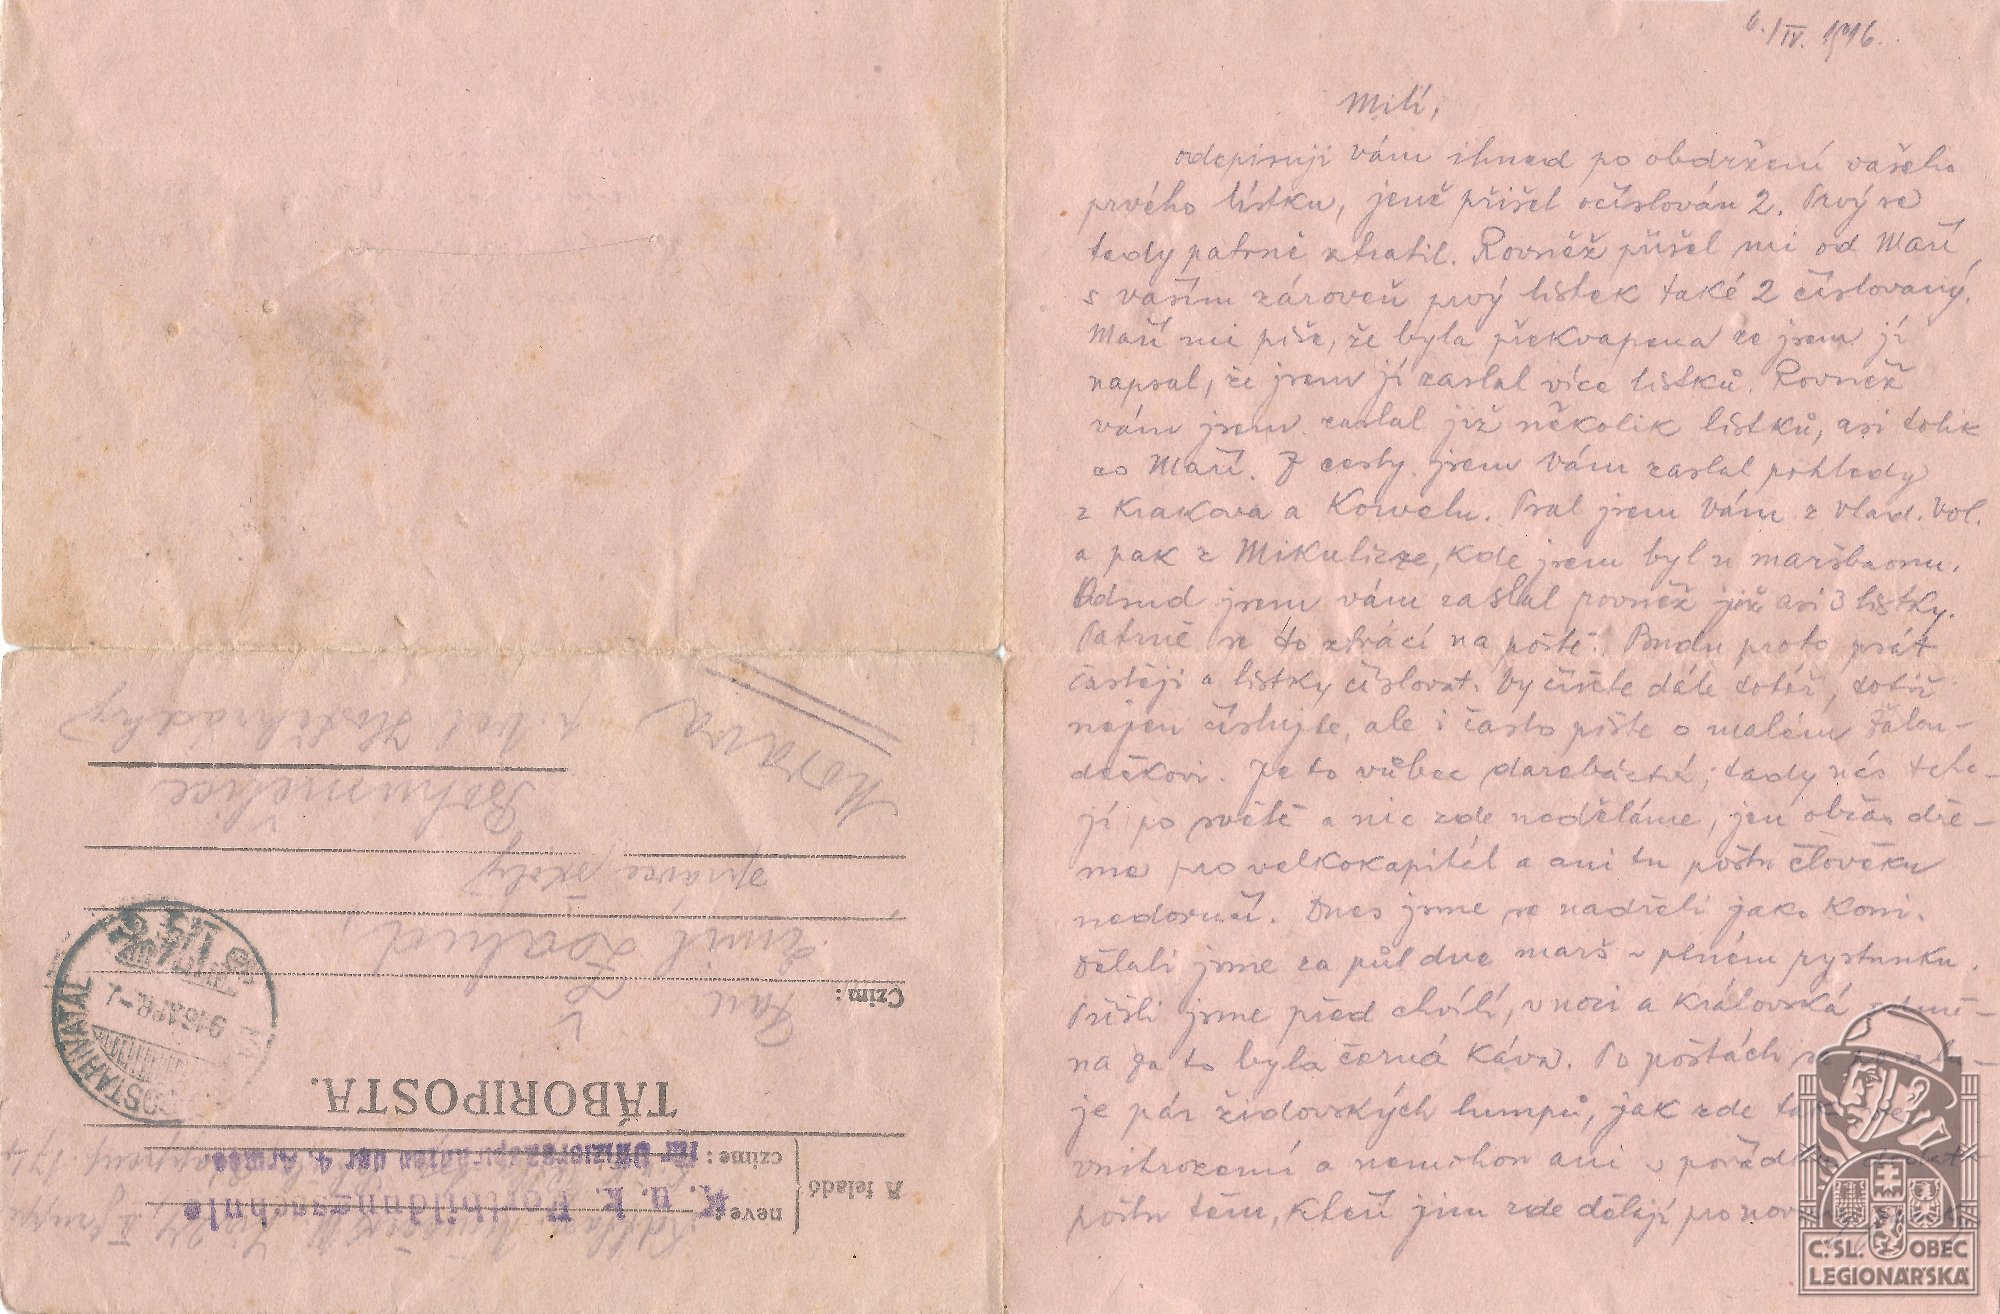 6./IV. 1916.
Milí,
odepisuji vám ihned po obdržení vašeho
prvého lístku, jenž přišel očíslován 2. Prvý se
tedy patrně ztratil. Rovněž přišel mi od Maří
s vaším zároveň prvý lístek také 2 číslovaný.
Maří mi píše, že byla překvapena že jsem jí
napsal, že jsem jí zaslal více lístků. Rovněž
vám jsem zaslal již několik lístků, asi tolik
co Maří. Z cesty jsem Vám zaslal pohledy
z Krakova a Kowelu. Psal jsem Vám z Vlad. Vol.
a pak z Mikulizze, kde jsem byl u maršbaonu.
Odsud jsem vám zaslal rovněž již asi 3 lístky.
Patrně se to ztrácí na poště. Budu proto psát
častěji a lístky číslovat. Vy čiňte dále totéž, totiž
nejen číslujte, ale i často pište o malém
dečkovi. Je to vůbec darebáctví, tady nás
jí po světě a nic zde neděláme, jen občas dře-
me pro velkokapitál a ani tu poštu člověku
nedoručí. Dnes jsme se nadřeli jako koni.
Dělali jsme za půl dne marš v plném rystunku.
Přišli jsme před chvílí, v noci a královská odmě-
na za to byla černá káva. Po poštách
je pár židovských lumpů, jak zde tak ve
vnitrozemí a nemohou ani v pořádku dodat
poštu těm, kteří jsou zde dělají pro
A feladó
neve:
czime:
K. u. k. Fortbildungsschule
für Offiziersaspiranten der 4. Armee
TÁBORIPOSTA.
Czim:
Pan
Emil
správce školy
Bohumělice
u. Vel. Hostěhrádky
Morava
POSTAHIVATAL
916 APR
Č.SL. OBEC
LEGIONÁŘSKÁ